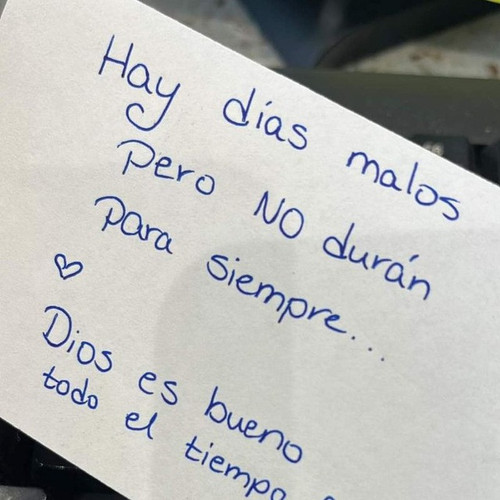 Hay días malos
Pero NO durán
para siempre...
♡
Dios es bueno
todo el tiempo